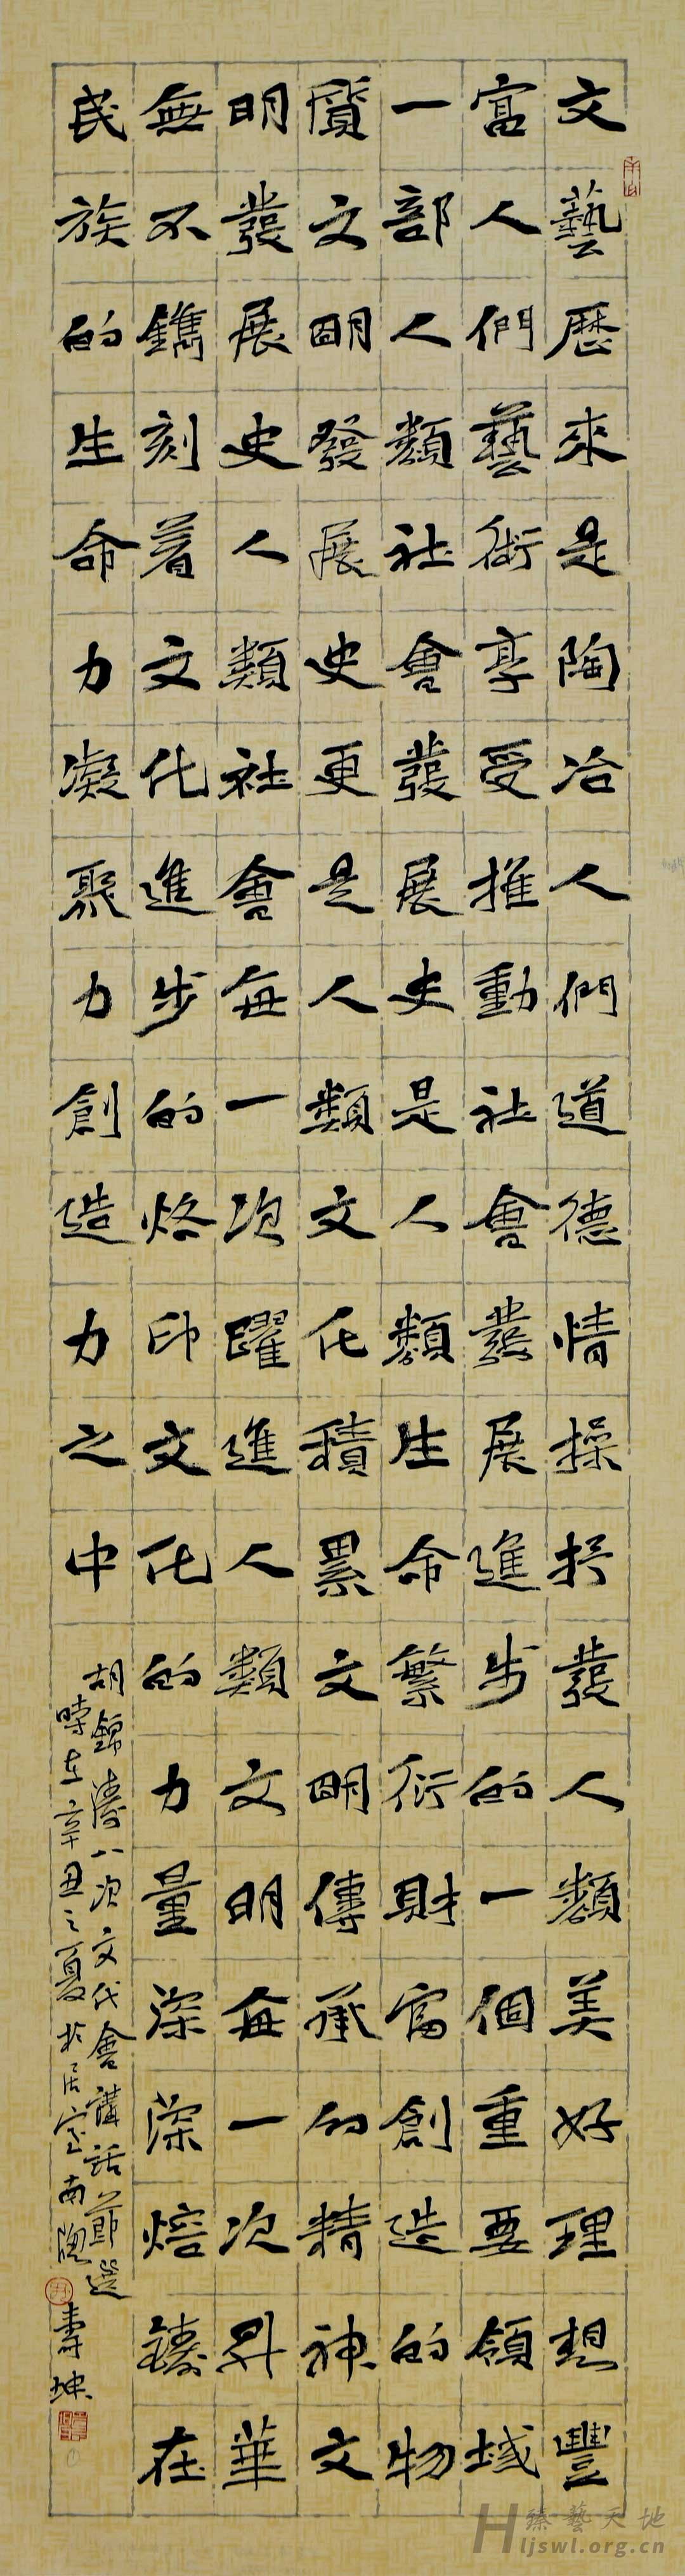 文藝歷來是陶冶人們道德情操抒發人類美好理想豐
富人們藝術享受推動社會發展進步的一個重要領域
一部人類社會發展史是人類生命繁衍財富創造的物
質文明發展史更是人類文化積累文明傳承的精神文
明發展史人類社會每一次躍進人類文明每一次昇華
無不鐫刻着文化進步的烙印文化的力量深深熔鑄在
民族的生命力凝聚力創造力之中
胡錦濤八次文代會講話節選
時在辛丑之夏於居室南窗
壽坤
臻藝天地
Hljswl.org.cn